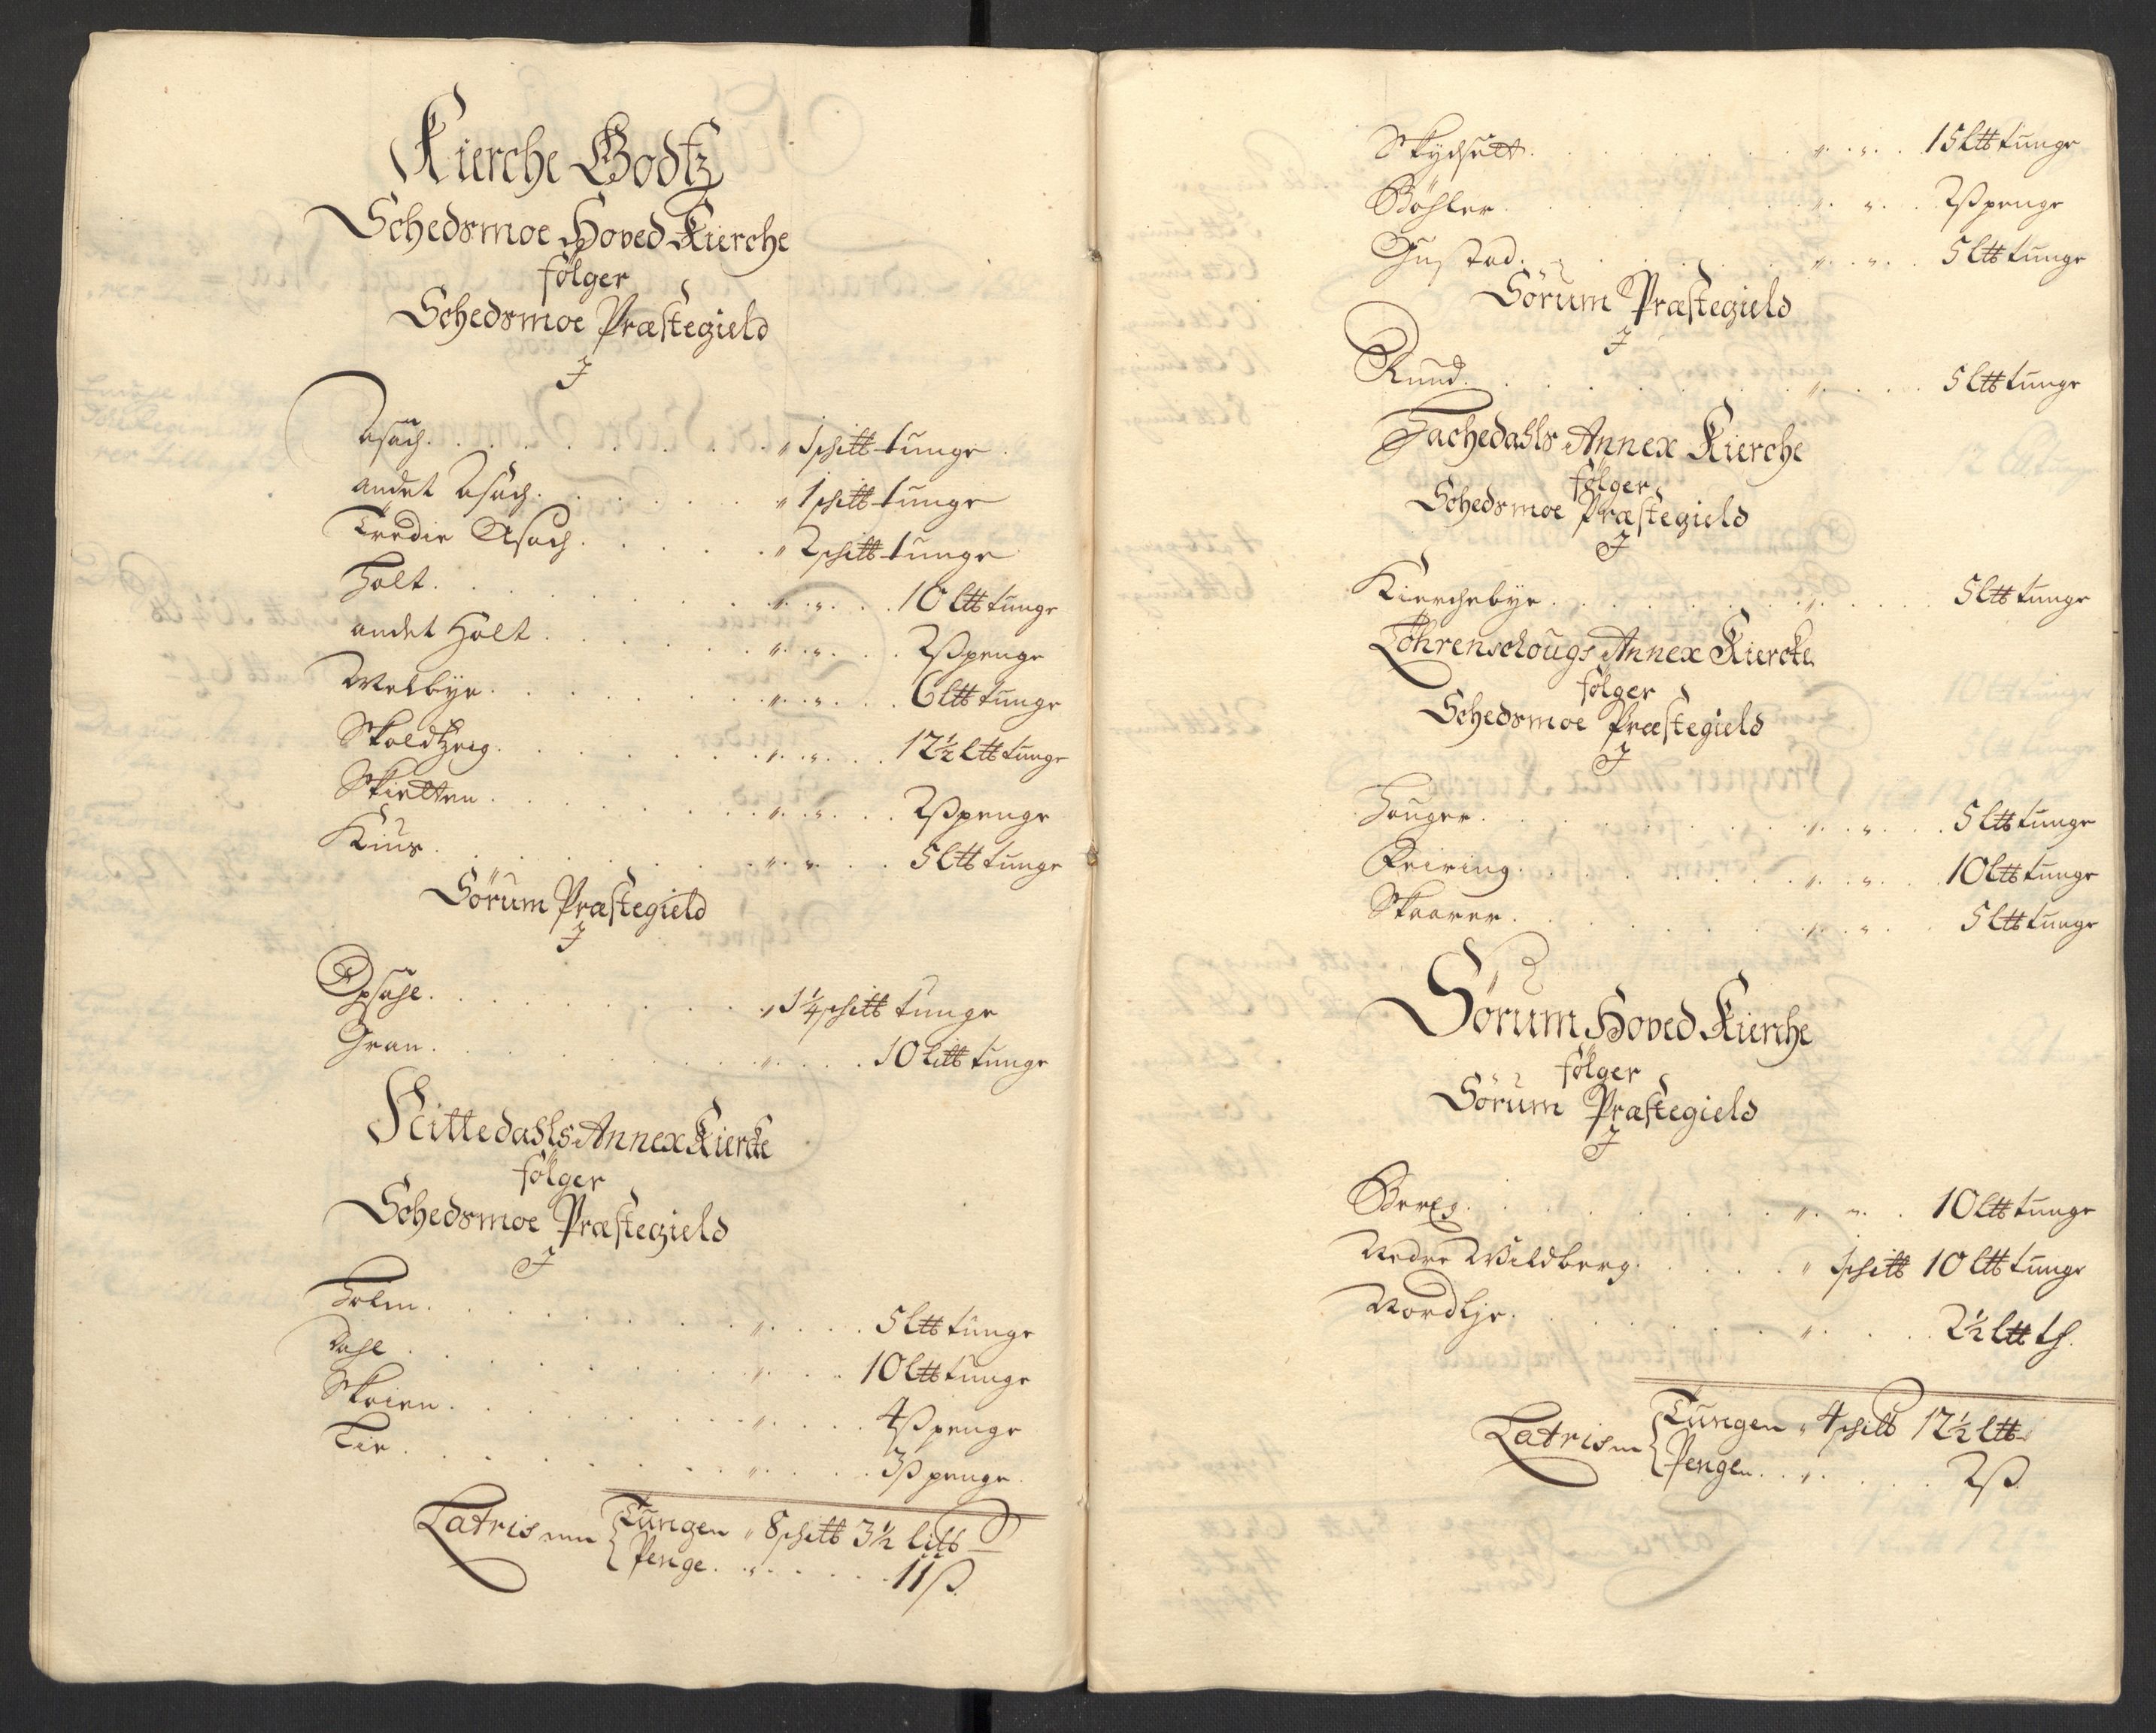 Kierche Godtz
Schedsmoe Hoved Kierche
følger
Schedsmoe Præstegield
J
Asach . . . . . . . . . " 1 schitt tunge
andet Asach . . . . . . " 1 schitt tunge
Tredie Asach . . . . . " 2 schitt tunge
Holt . . . . . . . . " . " . . 10 Ltt tunge
andet Holt . . . . . . " . " . . 2 ß penge
Welbye . . . . . . . " . " . . 6 Ltt tunge
. . . . . . . " . " . . 12½ Ltt tunge
Skietten . . . . . . . " . " . . 2 ß penge
Kius . . . . . . . . " . " . . 5 Ltt tunge
Sörum Præstegield
J
Opsahl . . . . . . . . . " 1¼ schitt tunge
Gran . . . . . . . . . " . . . 10 Litt tunge
Nittedahls Annex Kiercke
følger
Schedsmoe Præstegield
J
Holm . . . . . . . . . " . . . 5 Ltt tunge
Dahl . . . . . . . . . " . . . 10 Ltt tunge
Skøien . . . . . . . . " . . . 4 ß penge
Lie . . . . . . . . . " . . . 3 ß penge
Latris mm { Tungen " 8 schitt 3½ Litt
Penge . " . . . . 11 ß.
. . . . . . . " . " . . 15 Ltt tunge
Böhler . . . . . . . . " . " . . 2 ß penge
Gustad . . . . . . . . " . " . . 5 Ltt tunge
Sörum Præstegield
J
Rund . . . . . . . . . " . . . 5 Ltt tunge
Hachedahls Annex Kierche
følger
Schedsmoe Præstegield
J
Kierchebye . . . . . . . " . . . 5 Ltt tunge
Löhrenschougs Annex Kiercke
følger
Schedsmoe Præstegield
J
Houger . . . . . . . . " . " . . 5 Ltt tunge
Feiring . . . . . . . . " . " . . 10 Ltt tunge
Skaarer . . . . . . . . " . " . . 5 Ltt tunge
Sörum Hoved Kierche
følger
Sörum Præstegield
J
Berg . . . . . . . . . " . " . . 10 Ltt tunge
Nedre Wildberg . . . . . " 1 schitt 10 Ltt tunge
Nordlye . . . . . . . . " . . . 2½ Ltt th.
Latris m { Tungen " 4 schitt 17½ Ltt
Pengen . . " . . . . 2 ß